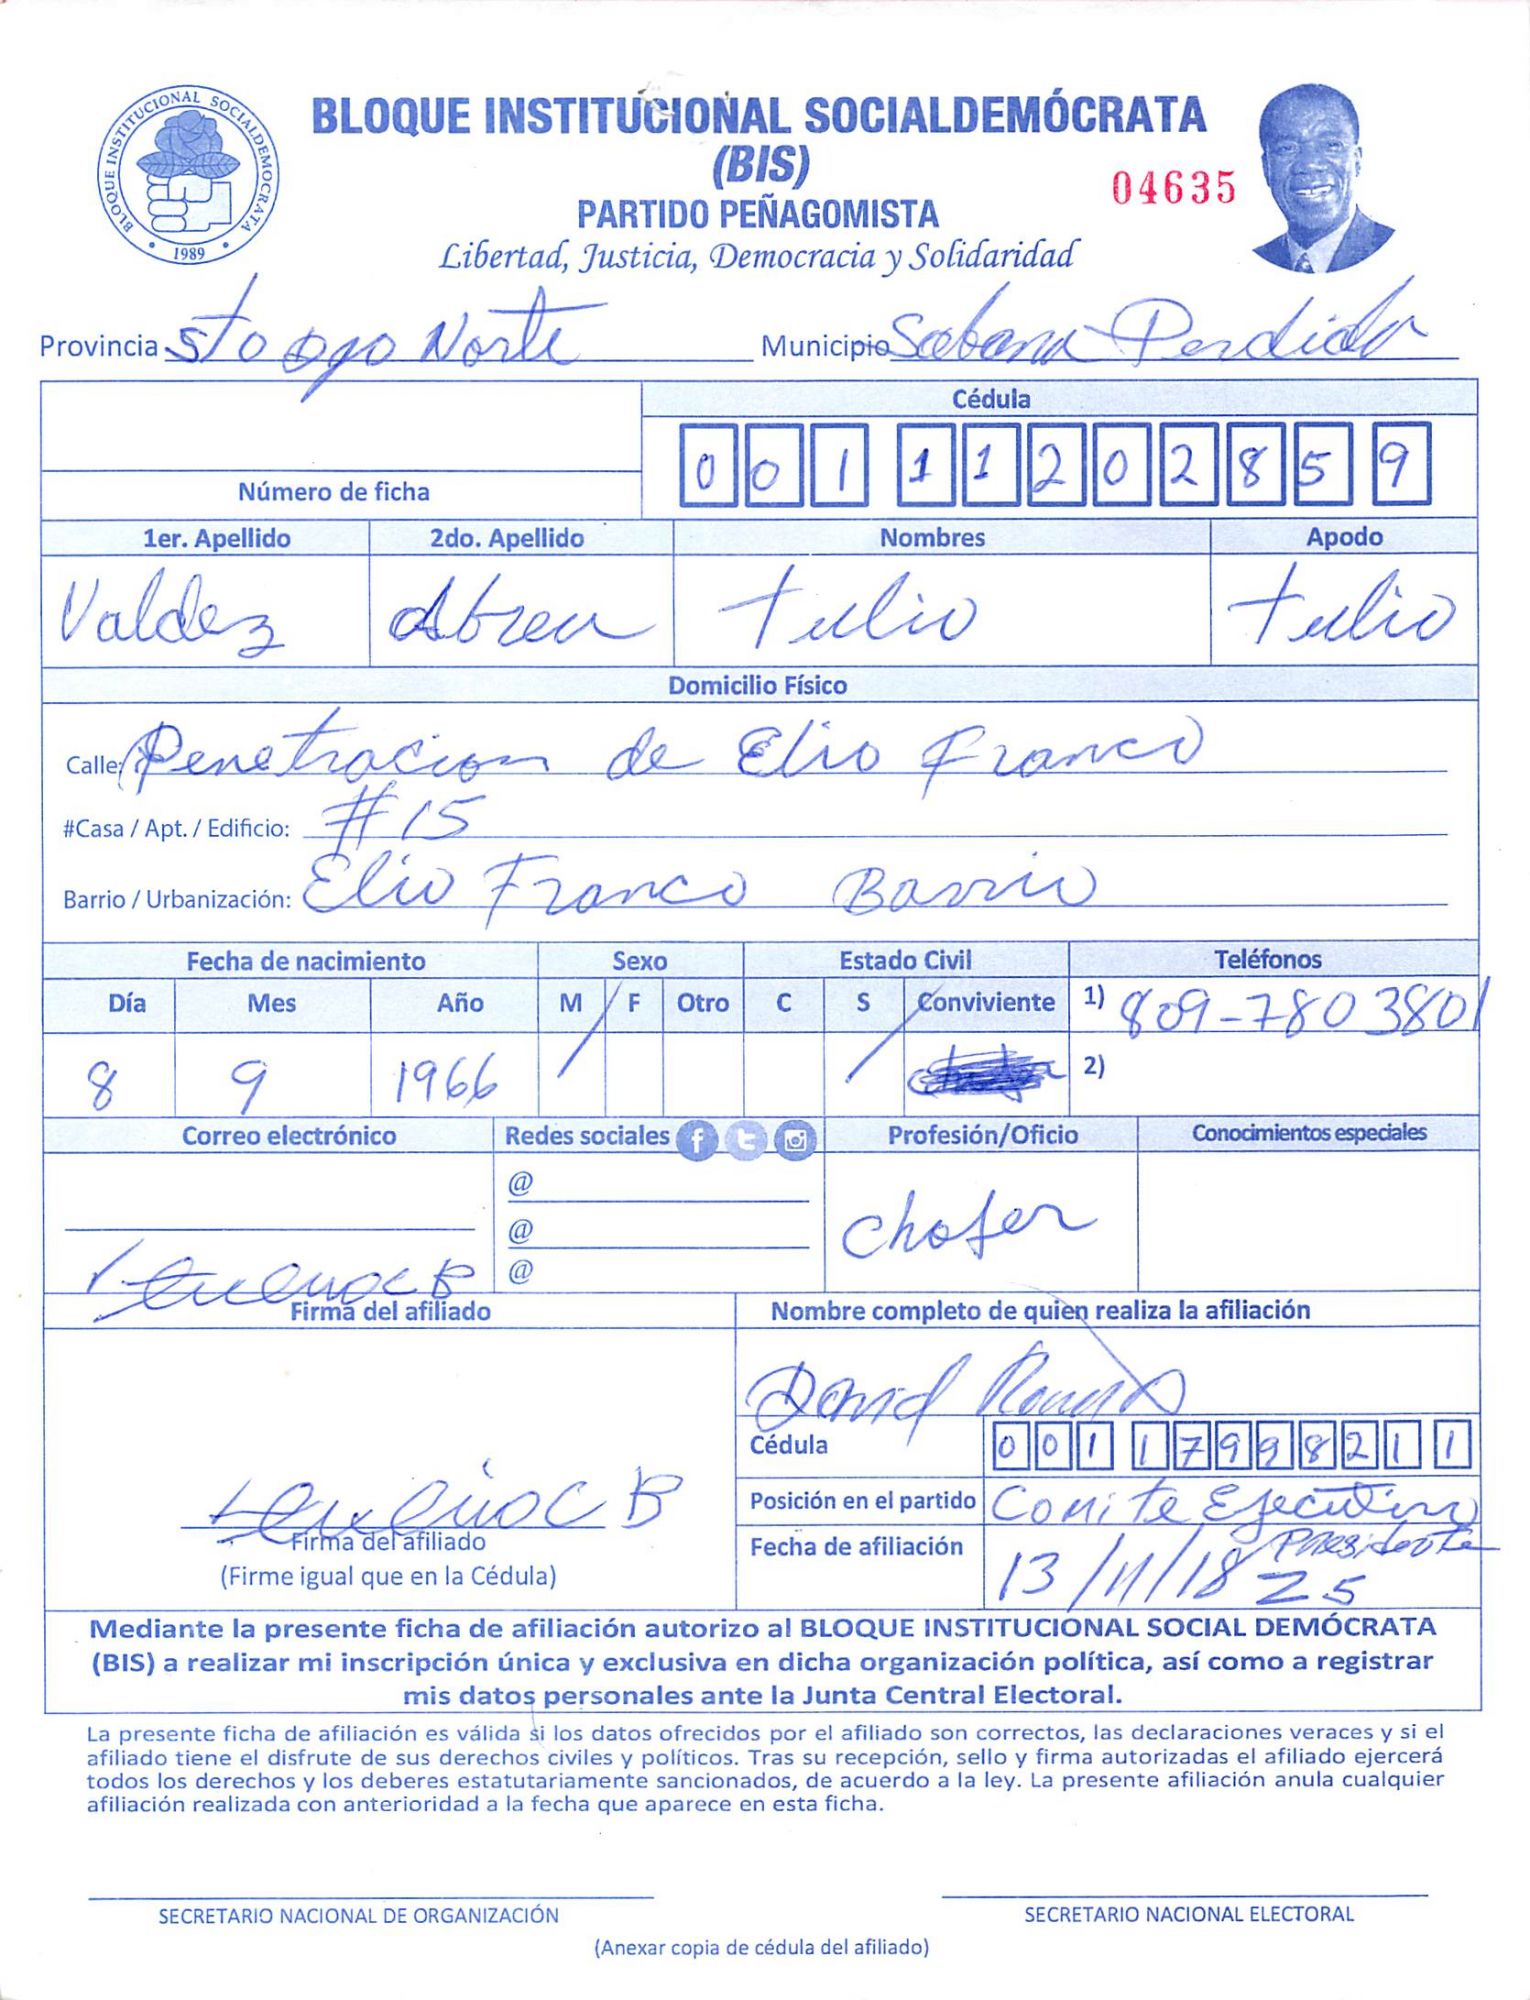 BLOQUE INSTITUCIONAL SOCIALDEMOCRATA
1989
BLOQUE INSTITUCIONAL SOCIALDEMÓCRATA
(BIS)
04635
PARTIDO PEÑAGOMISTA
Libertad, Justicia, Democracia y Solidaridad
Provincia Sto Dgo Norte Municipio Sabana Perdida
Cédula
001 1120285 9
Número de ficha
1er. Apellido 2do. Apellido Nombres Apodo
Valdez Abreu Tulio Tulio
Domicilio Físico
Calle: Penetracion de Elio Franco
#Casa / Apt. / Edificio: #15
Barrio / Urbanización: Elio Franco Barrio
Fecha de nacimiento Sexo Estado Civil Teléfonos
Día Mes Año M F Otro C S Conviviente 1) 809-780 3801
8 9 1966 2)
Correo electrónico Redes sociales Profesión/Oficio Conocimientos especiales
@
@
@
Chofer
Firma del afiliado Nombre completo de quien realiza la afiliación
David Ramos
Cédula 001 1799821 1
Posición en el partido Comite Ejecutivo
Presidente
Firma del afiliado
(Firme igual que en la Cédula)
Fecha de afiliación 13/11/18 Z5
Mediante la presente ficha de afiliación autorizo al BLOQUE INSTITUCIONAL SOCIAL DEMÓCRATA
(BIS) a realizar mi inscripción única y exclusiva en dicha organización política, así como a registrar
mis datos personales ante la Junta Central Electoral.
La presente ficha de afiliación es válida si los datos ofrecidos por el afiliado son correctos, las declaraciones veraces y si el
afiliado tiene el disfrute de sus derechos civiles y políticos. Tras su recepción, sello y firma autorizadas el afiliado ejercerá
todos los derechos y los deberes estatutariamente sancionados, de acuerdo a la ley. La presente afiliación anula cualquier
afiliación realizada con anterioridad a la fecha que aparece en esta ficha.
SECRETARIO NACIONAL DE ORGANIZACIÓN SECRETARIO NACIONAL ELECTORAL
(Anexar copia de cédula del afiliado)